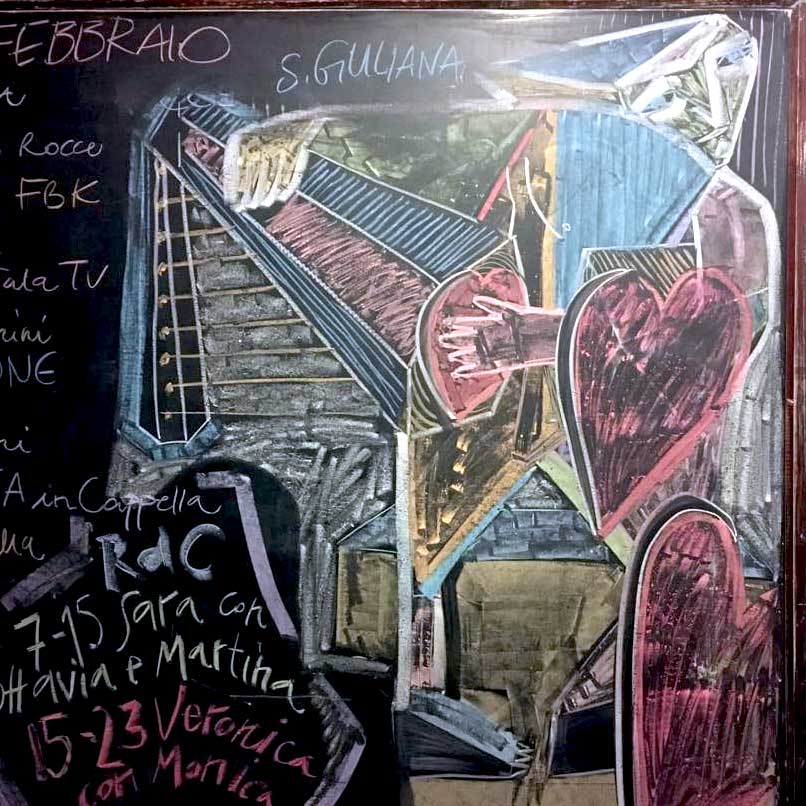 FEBBRAIO
S. GIULIANA
Rocce
FBK
TV
in Cappella
RdC
7-15 Sara con
Ottavia e Martina
15-23 Veronica
con Monica